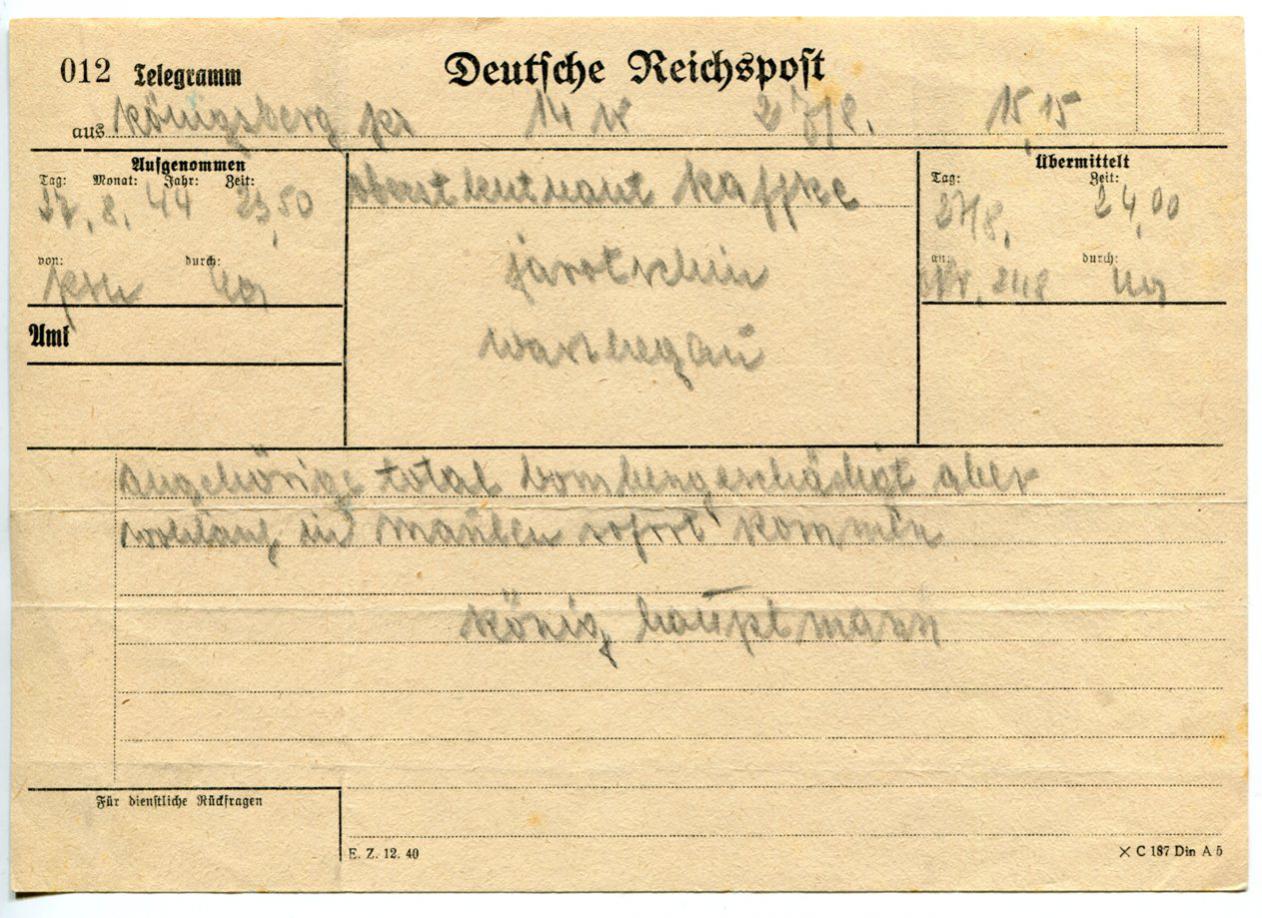 012 Telegramm Deutsche Reichspost
aus königsberg pr 14 W 27/8. 15 15
Aufgenommen
Tag: Monat: Jahr: Zeit:
27. 8. 44 23,50
von: durch:
Amt
oberstleutnant kaffke
jarotschin
warthegau
Übermittelt
Tag: Zeit:
27/8. 24,00
an: durch:
angehörige total bombengeschädigt aber
wohlauf in maulen sofort kommen
könig hauptmann
Für dienstliche Rückfragen
E. Z. 12. 40
× C 187 Din A 5